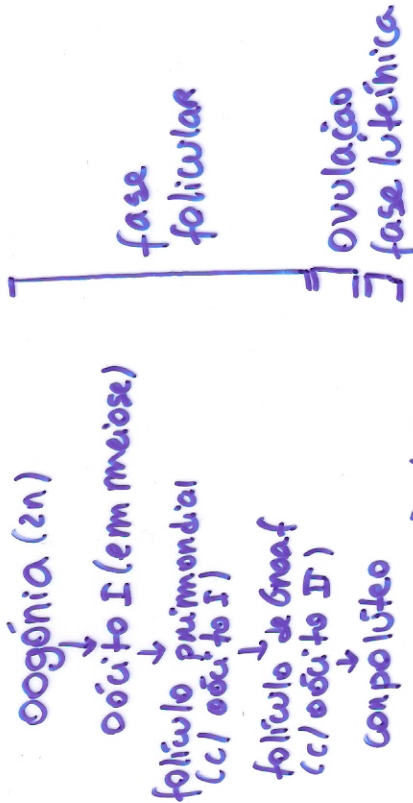 oogónia (2n)
↓
oócito I (em meiose)
↓
folículo primordial
(c/ oócito I)
↓
folículo de Graaf
(c/ oócito II)
↓
corpo lúteo
fase
folicular
ovulação
fase luteínica